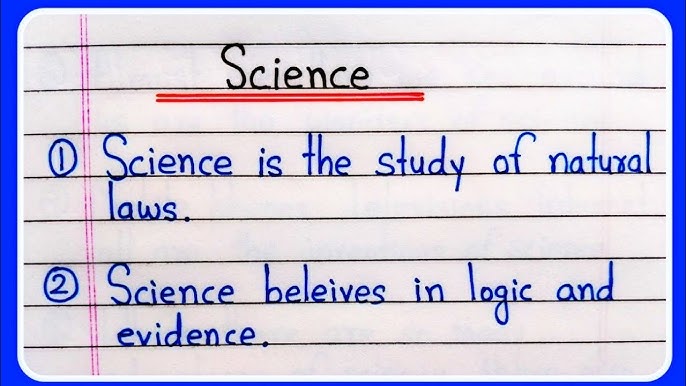 Science
① Science is the study of natural
laws.
② Science beleives in logic and
evidence.